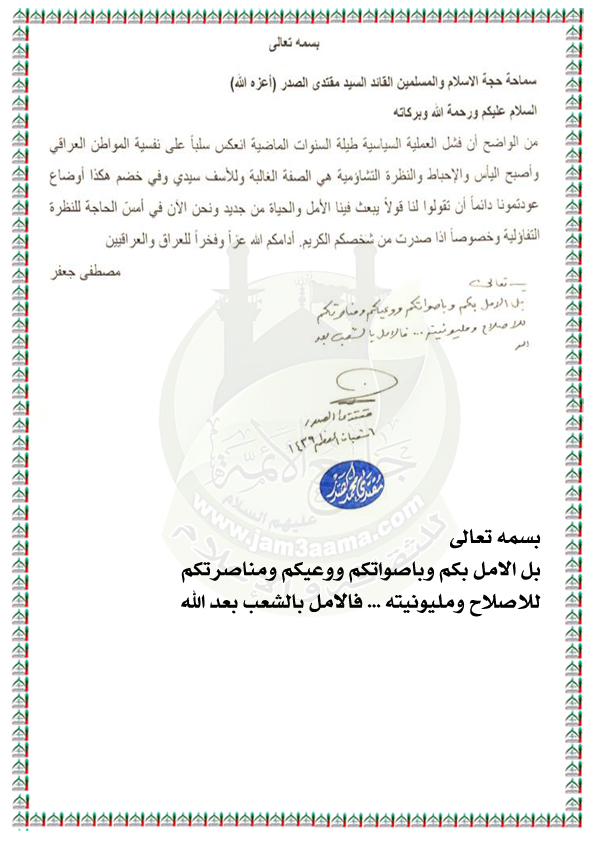 بسمه تعالى
سماحة حجة الاسلام والمسلمين القائد السيد مقتدى الصدر (أعزه الله)
السلام عليكم ورحمة الله وبركاته
من الواضح أن فشل العملية السياسية طيلة السنوات الماضية انعكس سلباً على نفسية المواطن العراقي
وأصبح اليأس والإحباط والنظرة التشاؤمية هي الصفة الغالبة وللأسف سيدي وفي خضم هكذا أوضاع
عودتمونا دائماً أن تقولوا لنا قولاً يبعث فينا الأمل والحياة من جديد ونحن الآن في أمسّ الحاجة للنظرة
التفاؤلية وخصوصاً اذا صدرت من شخصكم الكريم. أدامكم الله عزاً وفخراً للعراق والعراقيين
مصطفى جعفر
تعالى
بل الامل بكم وباصواتكم ووعيكم ومناصرتكم
للاصلاح ومليونيته ... فالامل بالشعب بعد
الله
مقتدى الصدر
شعبان المعظم ١٤٣٩
مقتدى محمد الصدر
جامع الأئمة
عليهم السلام
www.jam3aama.com
بسمه تعالى
بل الامل بكم وباصواتكم ووعيكم ومناصرتكم
للاصلاح ومليونيته ... فالامل بالشعب بعد الله